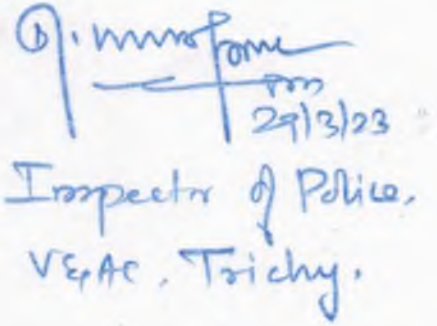 29/3/23
Inspector of Police.
V&AC, Trichy.